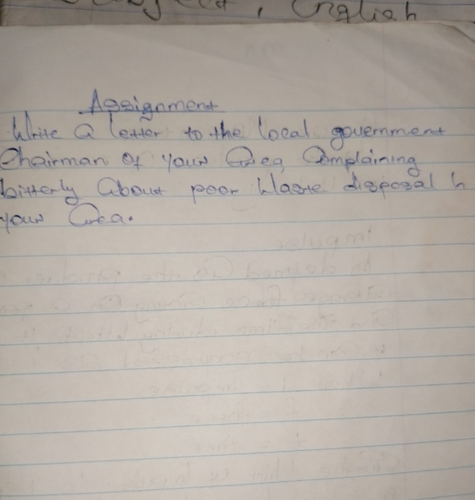 English
Assignment
Write a letter to the local government
Chairman of your area, Complaining
bitterly about poor waste disposal in
your area.